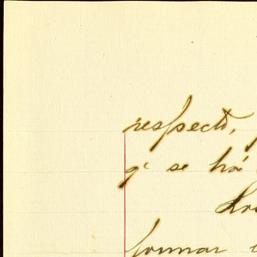 respecto,
q' se há
formar